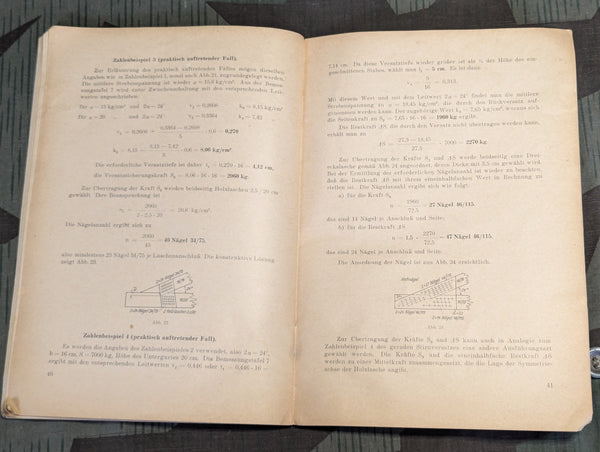 Zahlenbeispiel 3 (praktisch auftretender Fall).
Zur Erläuterung des praktisch auftretenden Falles mögen dieselben
Angaben wie in Zahlenbeispiel 1, somit auch Abb. 21, zugrundegelegt werden.
Die mittlere Strebenspannung ist wieder σ = 15,8 kg/cm². Aus der Bemes-
sungstafel 7 wird unter Zwischenschaltung mit den entsprechenden Leit-
werten angeschrieben:
Für σ = 15 kg/cm² und 2α = 24°
Für σ = 20 „ und 2α = 24°
= 0,270
Die erforderliche Versatztiefe ist daher t = 0,270 · 16 = 4,32 cm,
die Versatzsicherungskraft S = 8,06 · 16 · 16 = 2060 kg.
Zur Übertragung der Kraft S werden beidseitig Holzlaschen 2,5/20 cm
gewählt. Ihre Beanspruchung ist
2060
2 · 2,5 · 20
Die Nägelanzahl ergibt sich zu
n = 2060 / 45 = 46 Nägel 34/75,
also mindestens 23 Nägel 34/75 je Laschenanschluß. Die konstruktive Lösung
zeigt Abb. 23.
Abb. 23
Zahlenbeispiel 4 (praktisch auftretender Fall).
Es werden die Angaben des Zahlenbeispieles 2 verwendet, also 2α = 24°,
h = 16 cm, S = 7000 kg, Höhe des Untergurtes 20 cm. Die Bemessungstafel 7
ergibt mit den entsprechenden Leitwerten = 0,446 oder t = 0,446 · 16 =
40
7,14 cm. Da diese Versatztiefe wieder größer ist als ¼ der Höhe des ein-
geschnittenen Stabes, wählt man t = 5 cm. Es ist dann
5 / 16 = 0,313.
Mit diesem Wert und mit dem Leitwert 2α = 24° findet man die mittlere
Strebenspannung zu σ = 18,45 kg/cm², die durch den Rückversatz auf-
genommen werden kann. Der zugehörige Wert = 7,65 kg/cm², woraus sich
die Seitenkraft zu S = 7,65 · 16 · 16 = 1960 kg ergibt.
Die Restkraft ΔS, die durch den Versatz nicht übertragen werden kann,
erhält man zu
ΔS = 27,3 − 18,45 / 27,3 · 7000 = 2270 kg.
Zur Übertragung der Kräfte S und ΔS werde beidseitig eine Drei-
eckslasche gemäß Abb. 24 angeordnet, deren Dicke mit 3,5 cm gewählt wird.
Bei der Ermittlung der erforderlichen Nägelanzahl ist wieder zu beachten,
daß die Restkraft ΔS mit ihrem eineinhalbfachen Wert in Rechnung zu
stellen ist. Die Nägelanzahl ergibt sich wie folgt:
a) für die Kraft S
n = 1960 / 72,5 = 27 Nägel 46/115,
das sind 14 Nägel je Anschluß und Seite;
b) für die Restkraft ΔS
n = 1,5 · 2270 / 72,5 = 47 Nägel 46/115,
das sind 24 Nägel je Anschluß und Seite.
Die Anordnung der Nägel ist aus Abb. 24 ersichtlich.
Heftnägel
Abb. 24
Zur Übertragung der Kräfte S und ΔS kann auch in Analogie zum
Zahlenbeispiel 4 des geraden Stirnversatzes eine andere Ausführungsart
gewählt werden. Die Kräfte S und die eineinhalbfache Restkraft ΔS
werden zu einer Mittelkraft zusammengesetzt, die die Lage der Symmetrie-
achse der Holzlasche angibt.
41